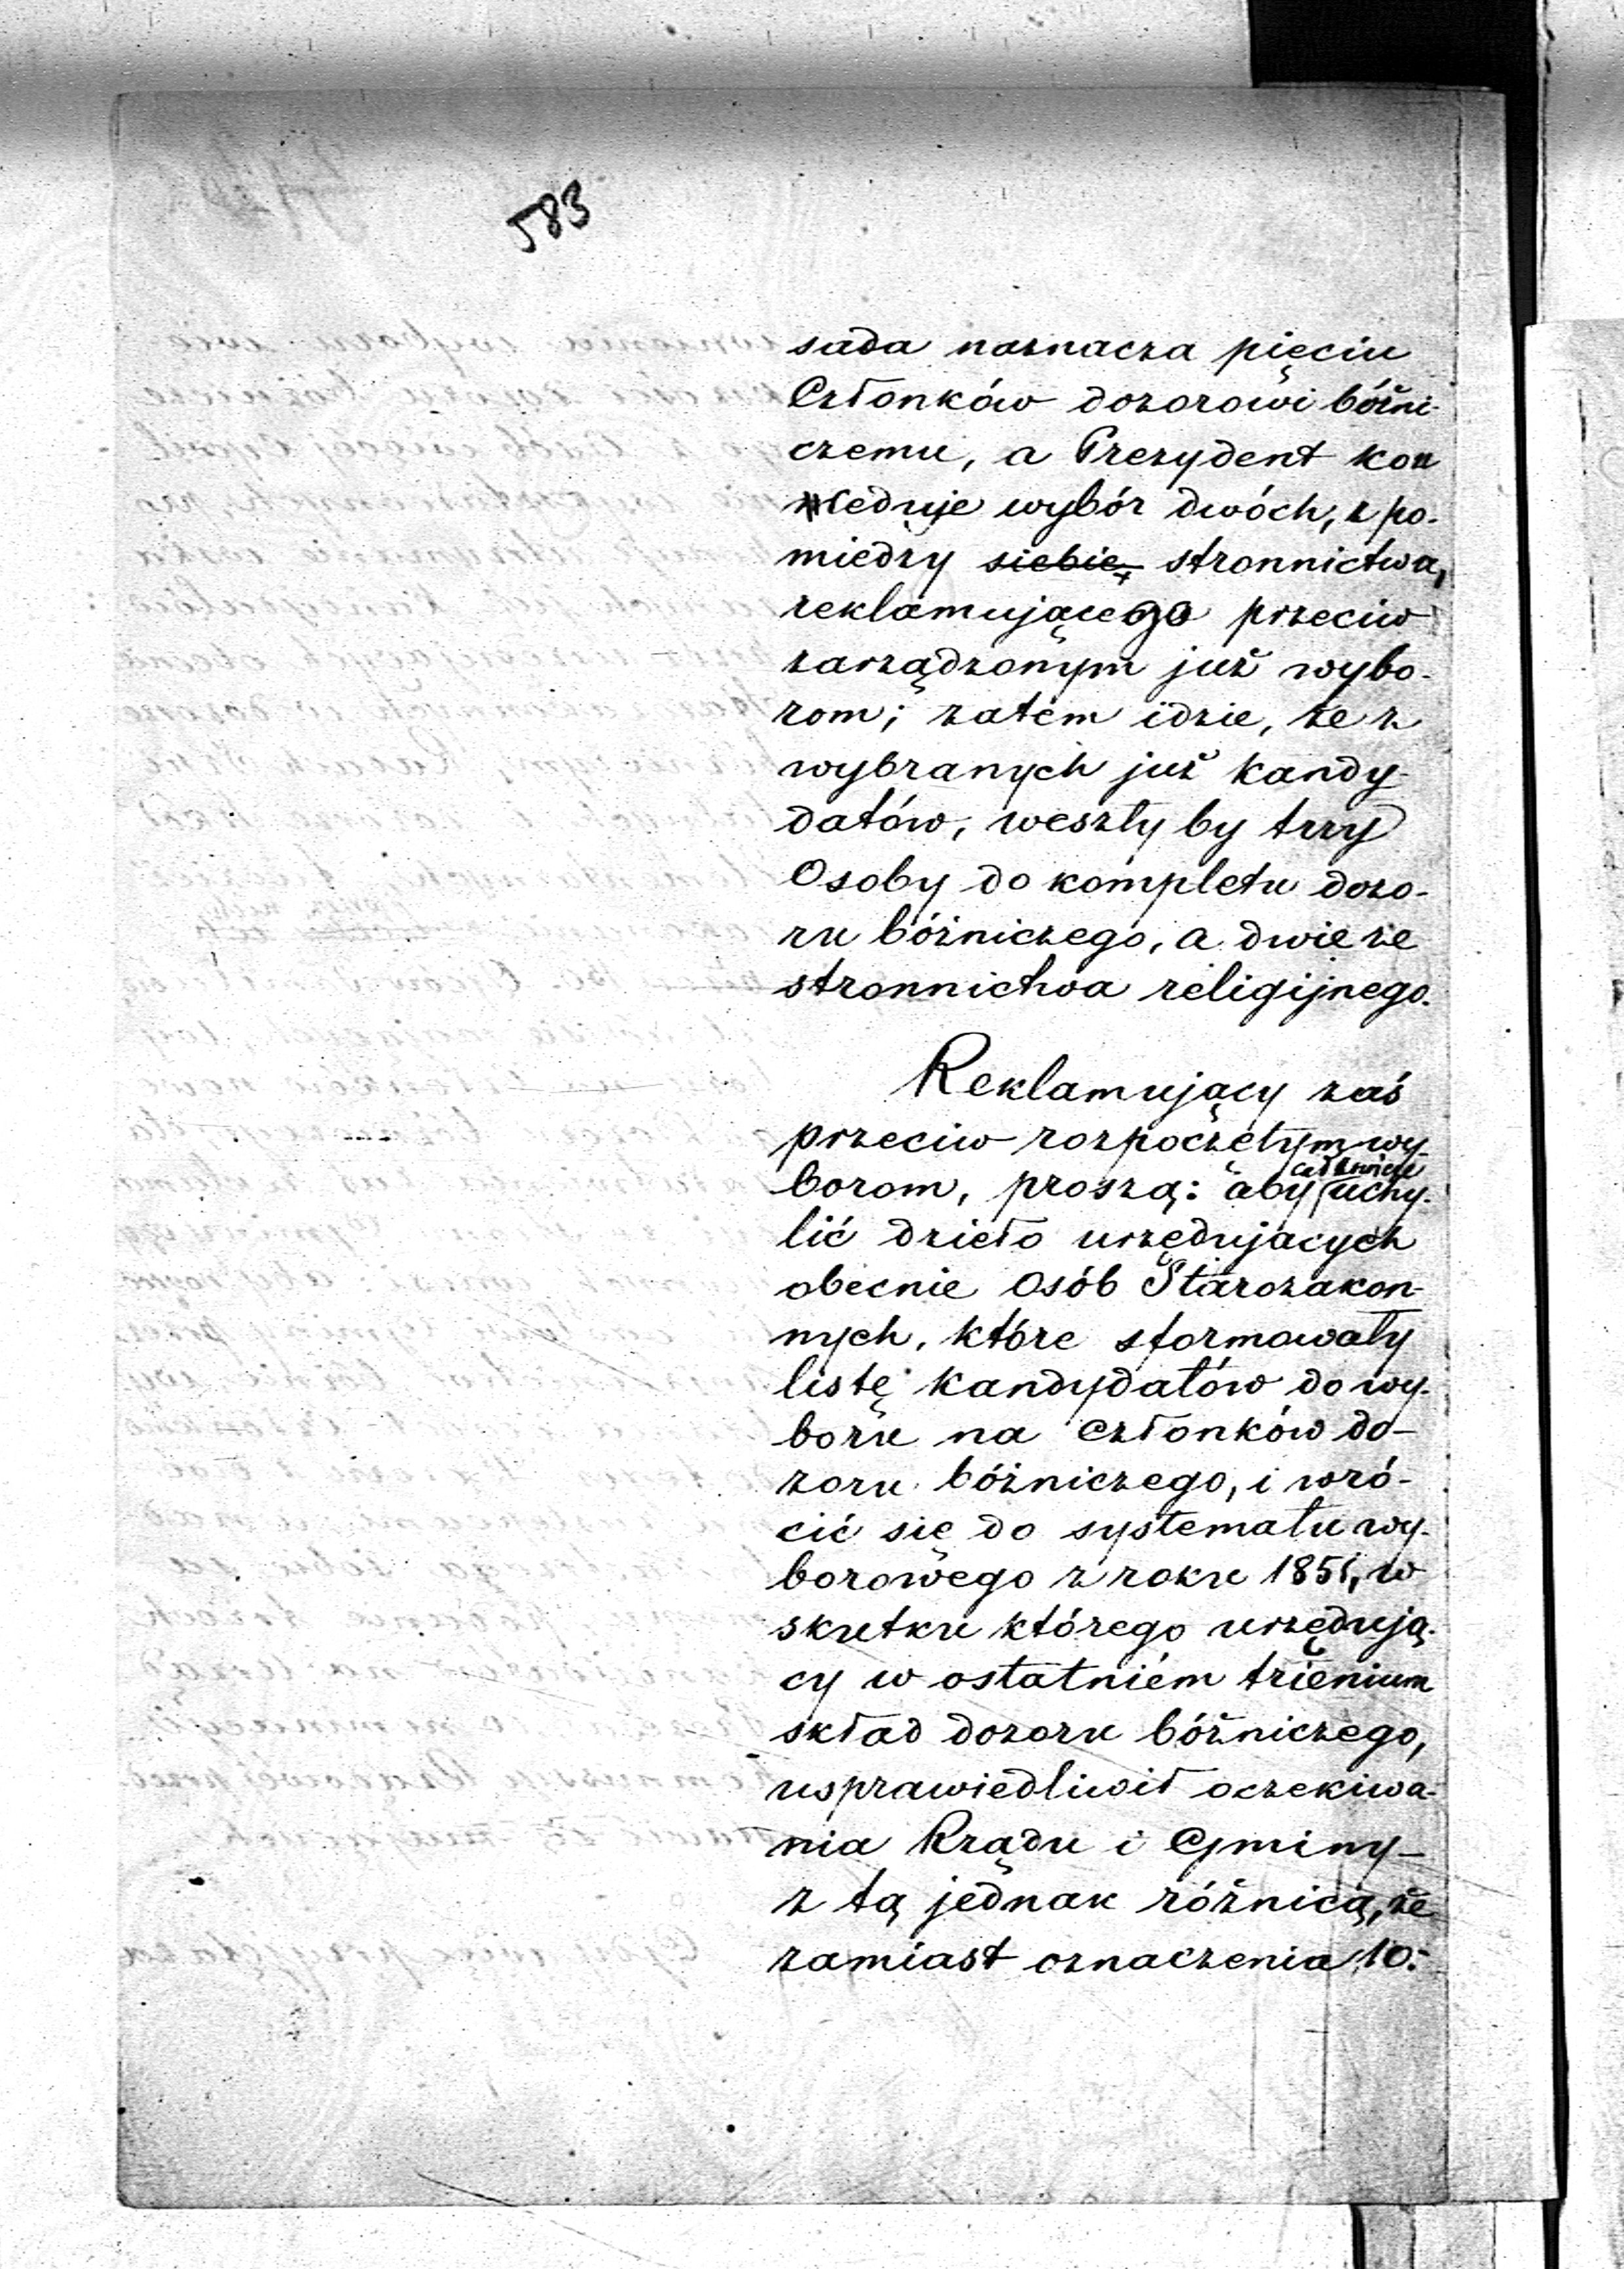 583
sada naznacza pięciu
Członków dozorowi bóżni-
czemu, a Prezydent kon
ceduje wybór dwóch, z po-
miedzy siebie, stronnictwa,
reklamującego przeciw
zarządzonym już wybo-
rom; zatem idzie, że z
wybranych już kandy-
datów, weszły by trzy
Osoby do kompletu dozo-
ru bóżniczego, a dwie ze
stronnictwa religijnego.
Reklamujący zaś
przeciw rozpoczętym wy-
borom, proszą: aby całkowicie uchy-
lić dzieło urzędujacych
obecnie Osób Starozakon-
nych, które sformowały
listę kandydatów do wy-
boru na członków do-
zoru bóżniczego, i wró-
cić się do systematu wy-
borowego z roku 1851, w
skutku którego urzędują-
cy w ostatniém trienium
skład dozoru bóżniczego,
usprawiedliwił oczekiwa-
nia Rządu i Gminy —
z tą jednak różnicą, że
zamiast oznaczenia 10.